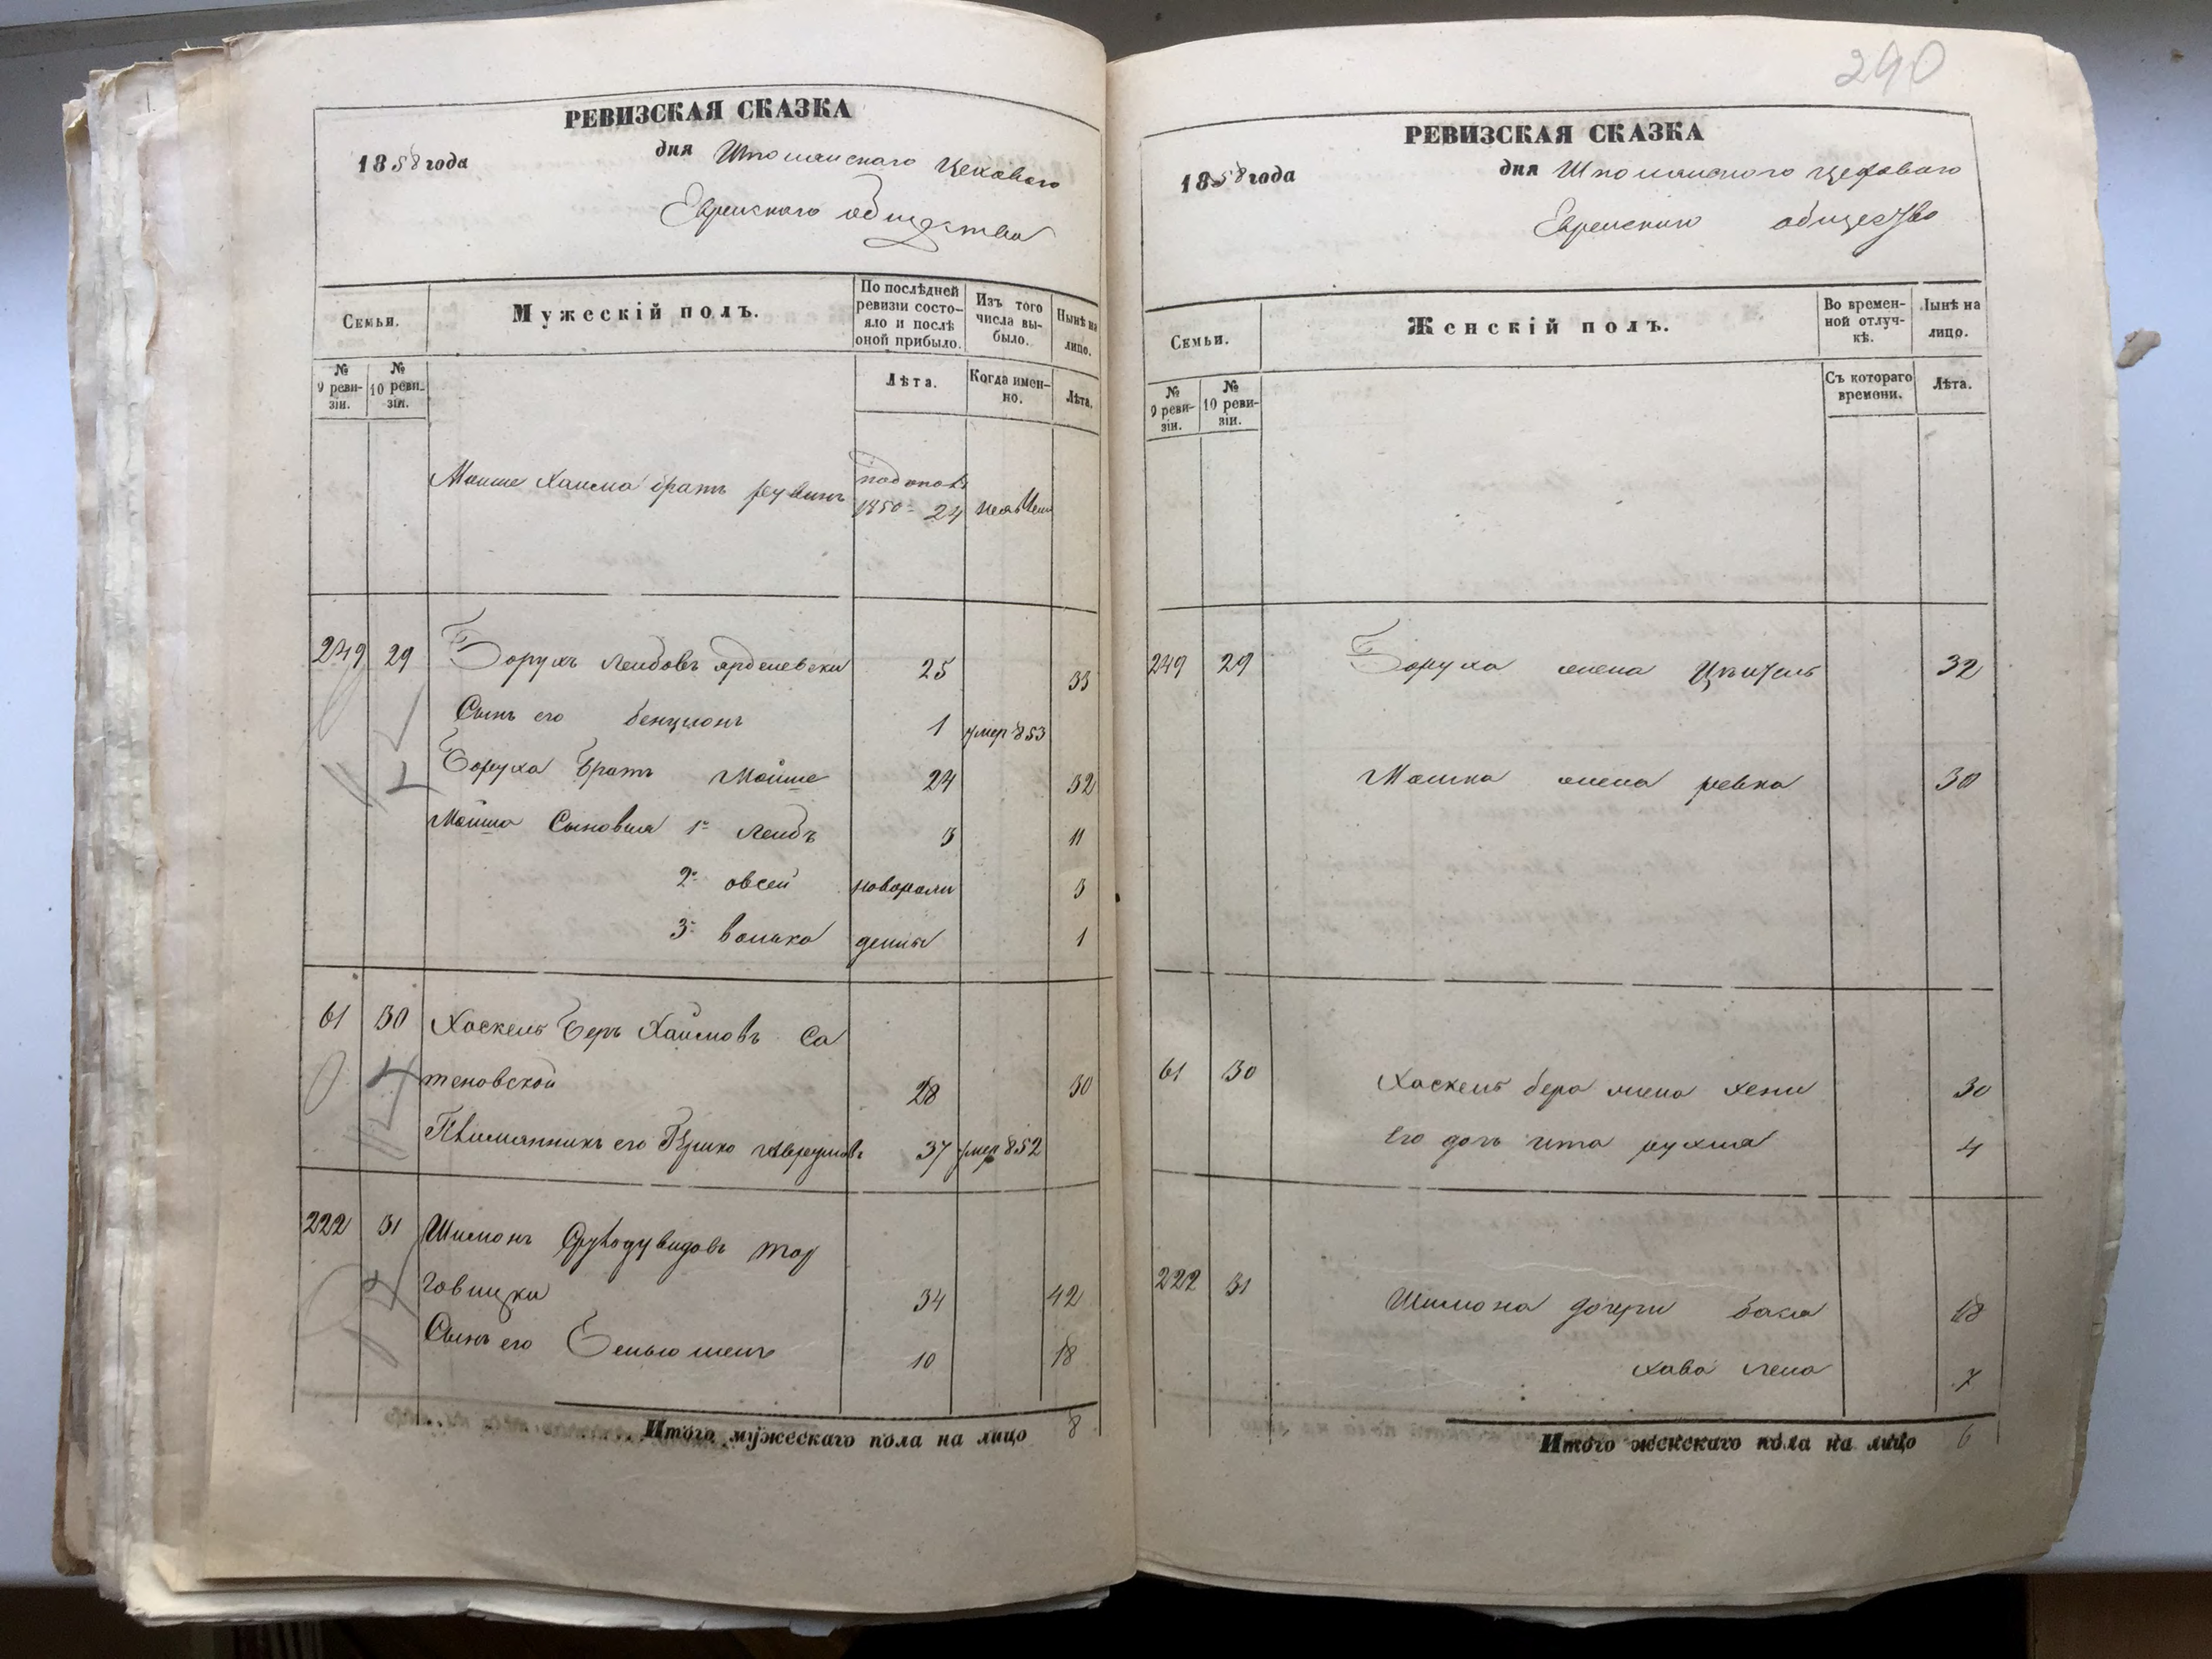 290
РЕВИЗСКАЯ СКАЗКА
1858 года дня Шполянского Цеховаго
Еврейскаго общества
Семьи.
Мужескій полъ.
По послѣдней ревизіи состояло и послѣ оной прибыло.
Изъ того числа выбыло.
Нынѣ на лицо.
№ 9 ревизіи.
№ 10 ревизіи.
Лѣта.
Когда именно.
Лѣта.
Мошке Хаима братъ рувинъ
1850 24
249 29 Борухъ Лейбовъ 25 33
Сынъ его бенционъ 1 умер 853
Боруха братъ Мойше 24 32
Мойша Сыновья 1й Лейбъ 3 11
2й овсей новорож 5
3й волько денны 1
61 30 Хаскель Беръ Хаимовъ Са
тановской 28 30
Племянникъ его Аврумовъ 37 умер 852
222 31 Шимонъ тор
говицки 34 42
Сынъ его 10 18
Итого мужескаго пола на лицо 8
РЕВИЗСКАЯ СКАЗКА
1858 года дня Шполянского цеховаго
Еврейскаго общества
Семьи.
Женскій полъ.
Во временной отлучкѣ.
Нынѣ на лицо.
№ 9 ревизіи.
№ 10 ревизіи.
Съ котораго времени.
Лѣта.
249 29 Боруха жена 32
Мошка жена ревка 30
61 30 Хаскель бера жена хени 30
Его дочь ита рухля 4
222 31 Шимона дочери бася 18
хава лея 7
Итого женскаго пола на лицо 6